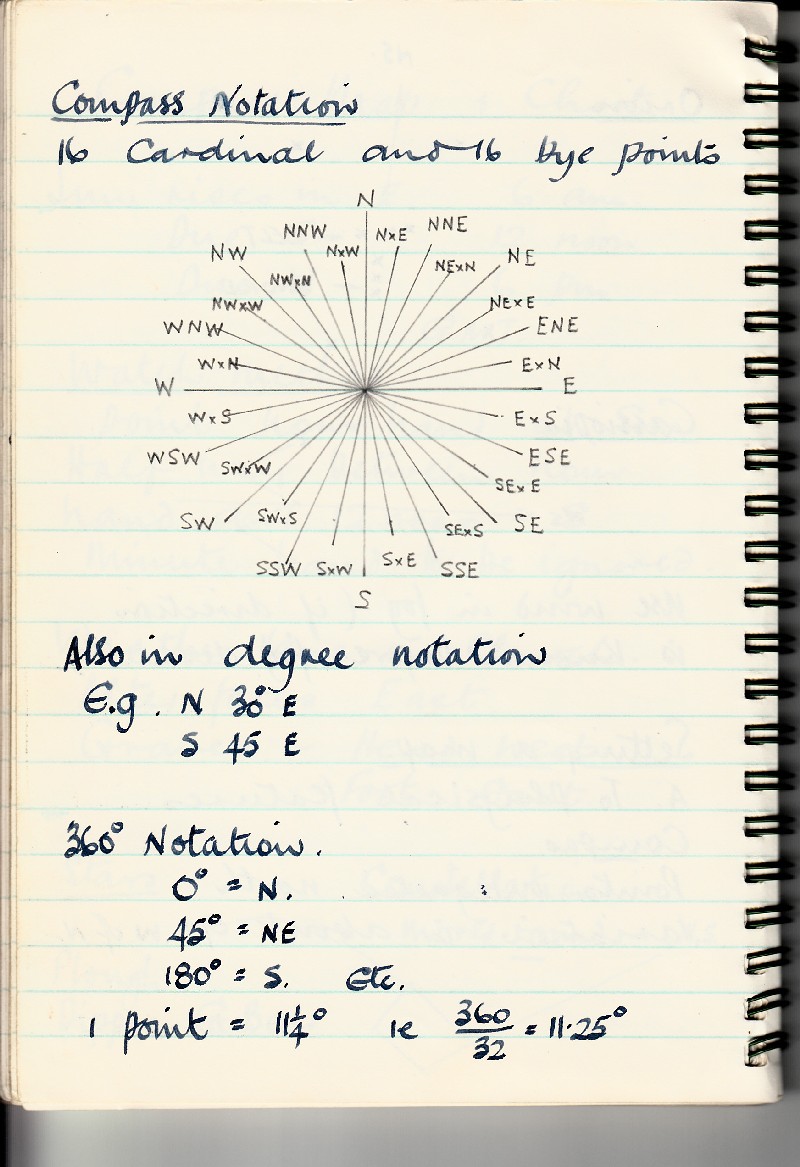 Compass Notation
16 Cardinal and 16 bye points
N
NNW NxW NxE NNE
NW NWxN NExN NE
NWxW NExE
WNW ENE
WxN ExN
W E
WxS ExS
WSW SWxW ESE
SExE
SW SWxS SExS SE
SSW SxW SxE SSE
S
Also in degree notation
E.g. N 30° E
S 45 E
360° Notation.
0° = N.
45° = NE
180° = S. Etc.
1 point = 11¼° ie 360/32 = 11·25°